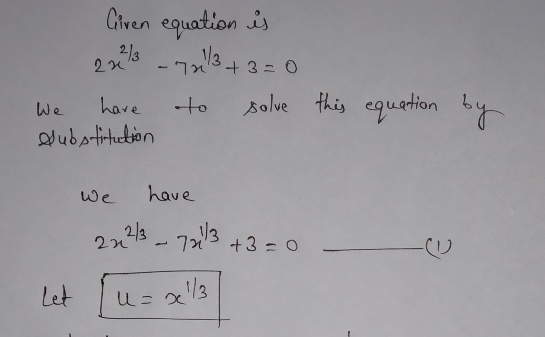 Given equation is
2x^{2/3} - 7x^{1/3} + 3 = 0
We have to solve this equation by
substitution
We have
2x^{2/3} - 7x^{1/3} + 3 = 0 ———(1)
Let u = x^{1/3}